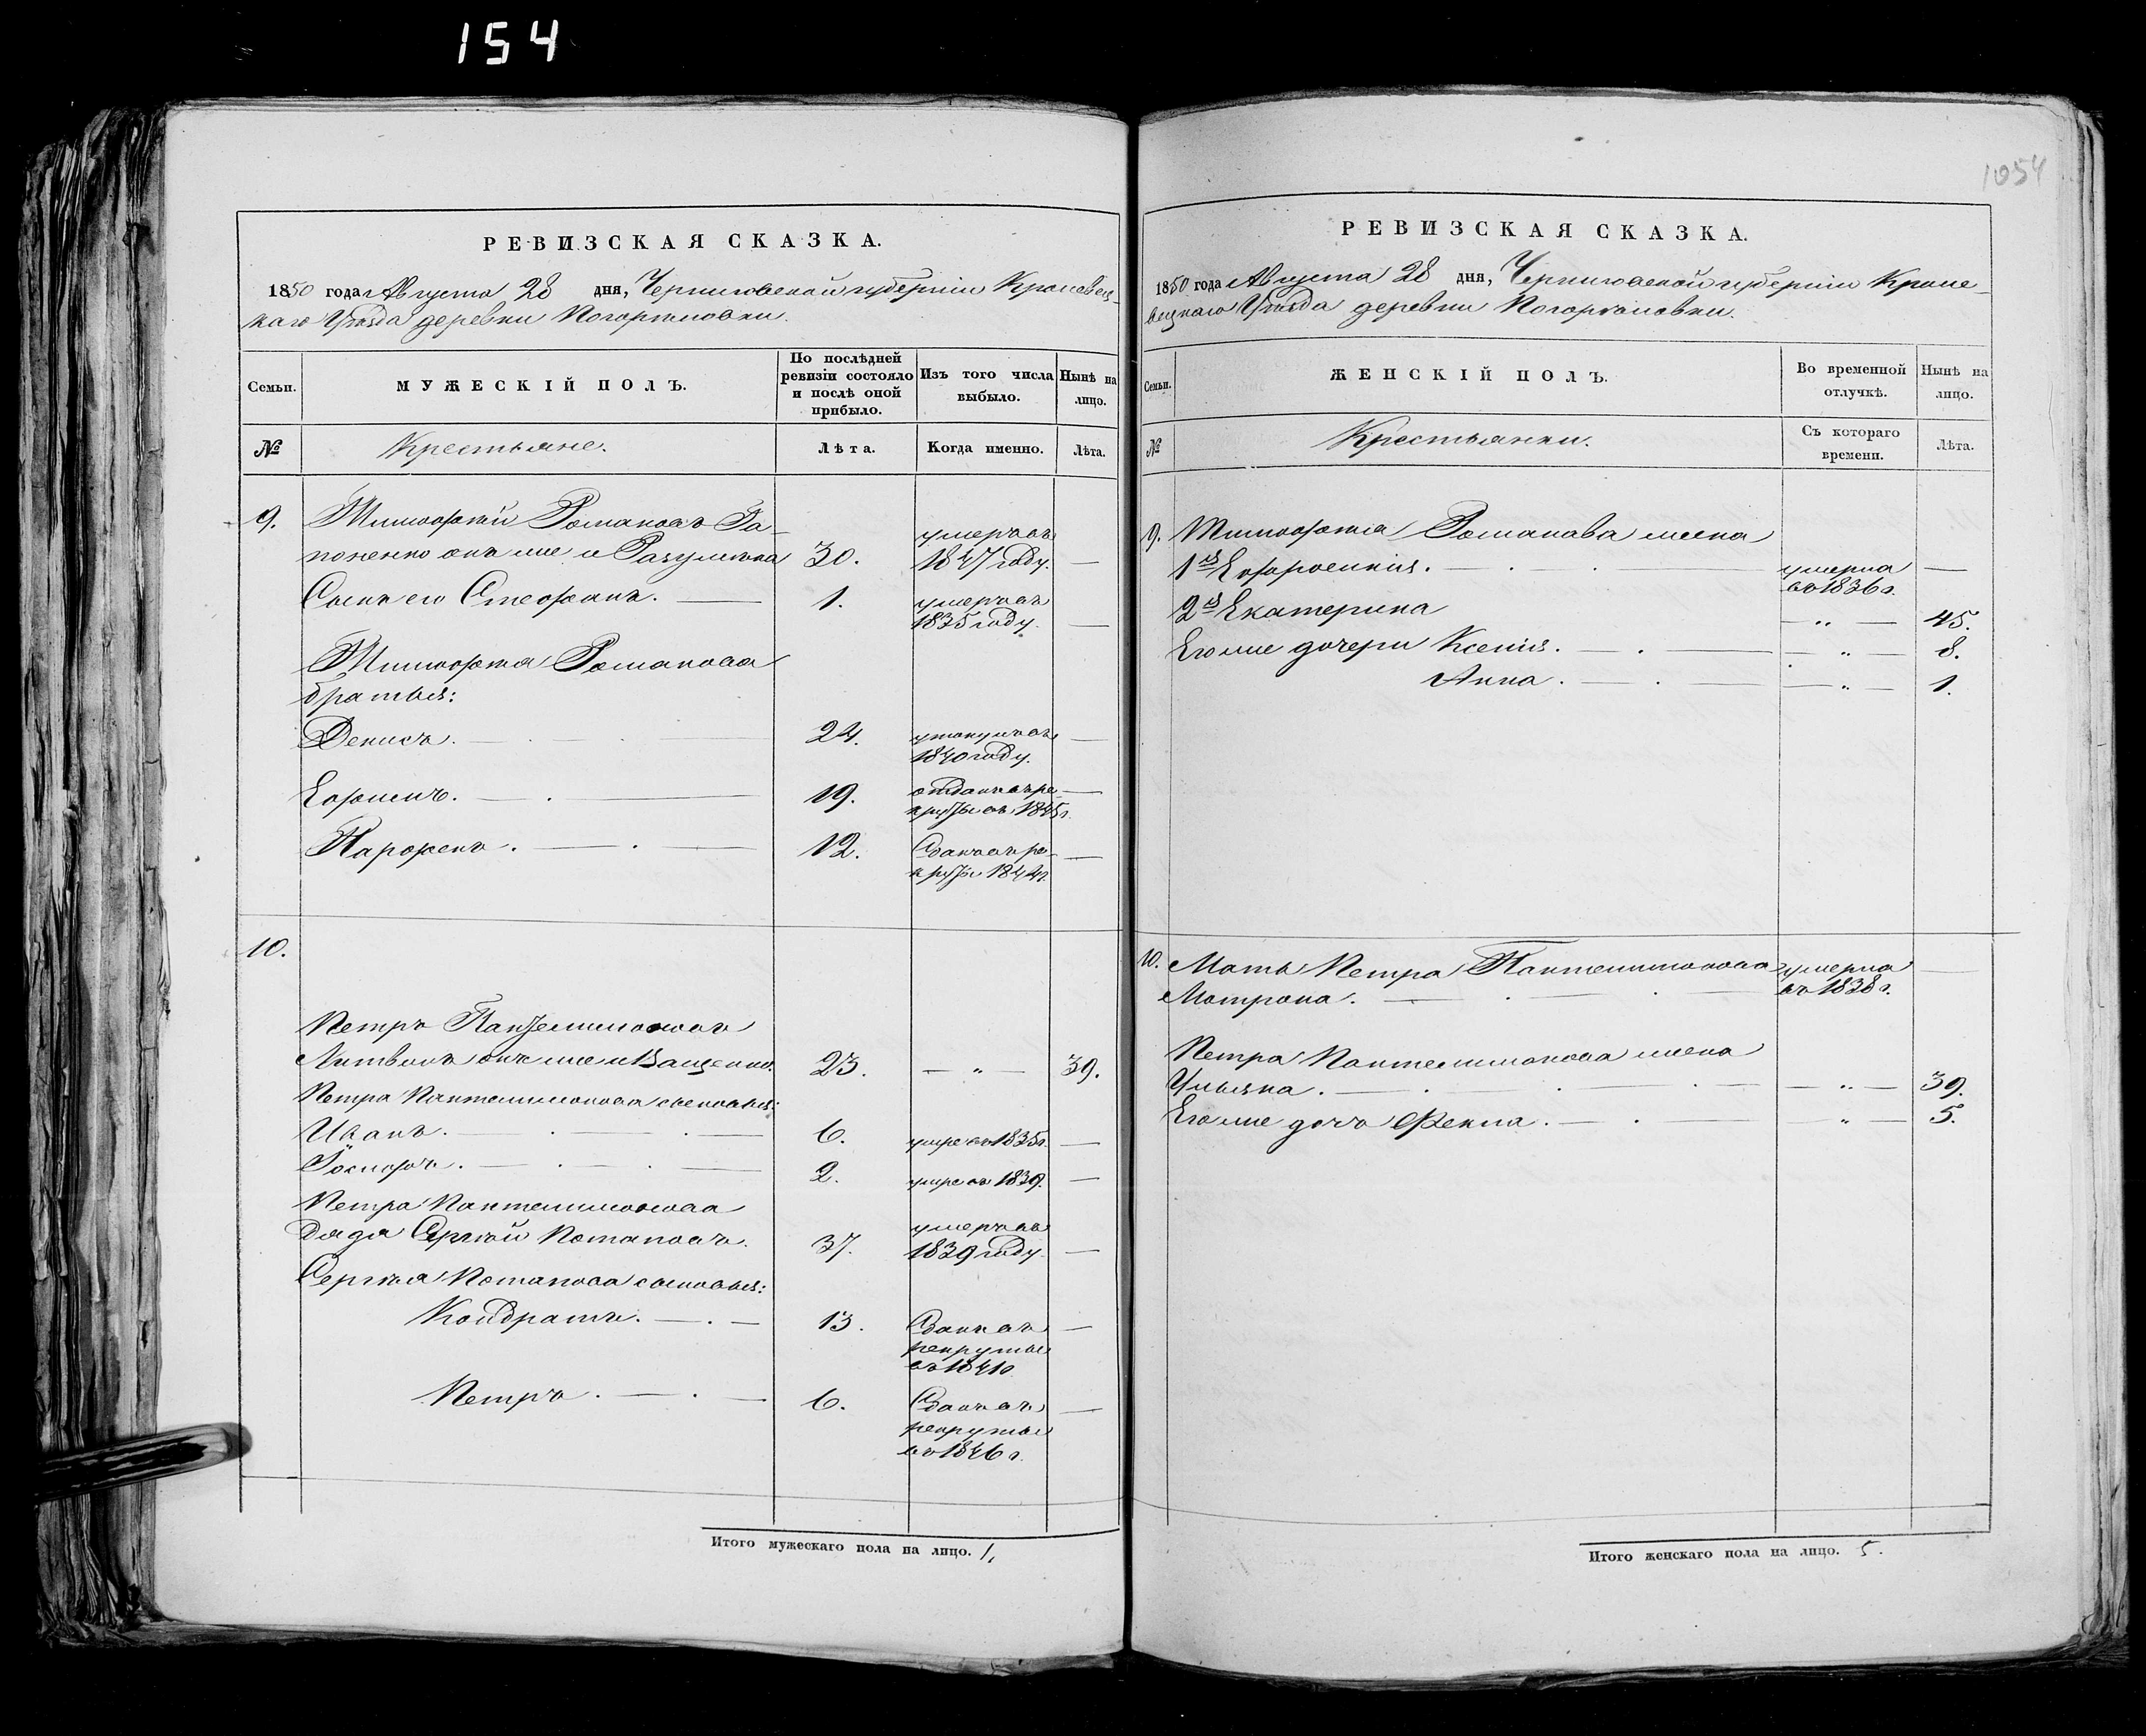 154
1054
РЕВИЗСКАЯ СКАЗКА.
1850 года Августа 28 дня, Черниговской губернiи Кролевец-
каго Уѣзда деревни Погорѣловки.
Семьи.
МУЖЕСКIЙ ПОЛЪ.
По послѣдней
ревизiи состояло
и послѣ оной
прибыло.
Изъ того числа
выбыло.
Нынѣ на
лицо.
№
Крестьяне.
Лѣта.
Когда именно.
Лѣта.
9. Тимофѣй Романовъ Га-
поненко онъ же и Разумѣнко 30. умеръ въ 1847 году. —
Сынъ его Стефанъ. — 1. умеръ въ 1835 году. —
Тимофѣя Романова
братья:
Денисъ. — 24. утонулъ въ 1840 году. —
Ефимъ. — 19. отданъ въ ре-
круты въ 1845 г. —
Парфенъ. — 12. Сданъ въ ре-
круты 1844 г. —
10.
Петръ Пантелимоновъ
Литвинъ онъ же и Ващенко. 23. — „ — 39.
Петра Пантелимонова сыновья:
Иванъ. — 6. умре въ 1835 г. —
Iосифъ. — 2. умре въ 1839. —
Петра Пантелимонова
дядя Сергѣй Потаповъ. 37. умеръ въ 1839 году. —
Сергѣя Потапова сыновья:
Кондратъ. — 13. Сданъ въ
рекруты
въ 1841 г. —
Петръ. — 6. Сданъ въ
рекруты
въ 1846 г. —
Итого мужескаго пола на лицо. 1,
РЕВИЗСКАЯ СКАЗКА.
1850 года Августа 28 дня, Черниговской губернiи Кроле-
вецкаго Уѣзда деревни Погорѣловки.
Семьи.
ЖЕНСКIЙ ПОЛЪ.
Во временной
отлучкѣ.
Нынѣ на
лицо.
№
Крестьянки.
Съ котораго
времени.
Лѣта.
9. Тимофѣя Романова жена
1я Ефросинiя. — умерла
въ 1836 г. —
2я Екатерина — „ — 45.
Его же дочери Ксенiя. — „ — 8.
Анна. — „ — 1.
10. Мать Петра Пантелимонова умерла —
Мотрона. — въ 1838 г.
Петра Пантелимонова жена
Ульяна. — „ — 39.
Его же дочь Фекла. — „ — 5.
Итого женскаго пола на лицо. 5.